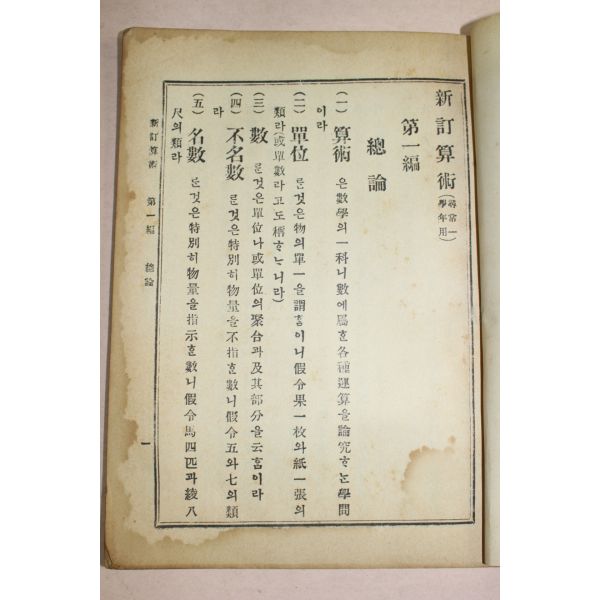 新訂算術(尋常一學年用)
第一編
總論
(一) 算術 은數學의一科니數에屬ᄒᆞᆫ各種運算을論究ᄒᆞᄂᆞᆫ學問
이라
(二) 單位 ᄅᆞᆫ것은物의單一을謂ᄒᆞᆷ이니假令果一枚와紙一張의
類라(或單數라고도稱ᄒᆞᄂᆞ니라)
(三) 數 ᄅᆞᆫ것은單位나或單位의聚合과及其部分을云ᄒᆞᆷ이라
(四) 不名數 ᄅᆞᆫ것은特別히物量을不指ᄒᆞᆫ數니假令五와七의類
라
(五) 名數 ᄅᆞᆫ것은特別히物量을指示ᄒᆞᆫ數니假令馬四匹과綾八
尺의類라
新訂算術 第一編 總論
一